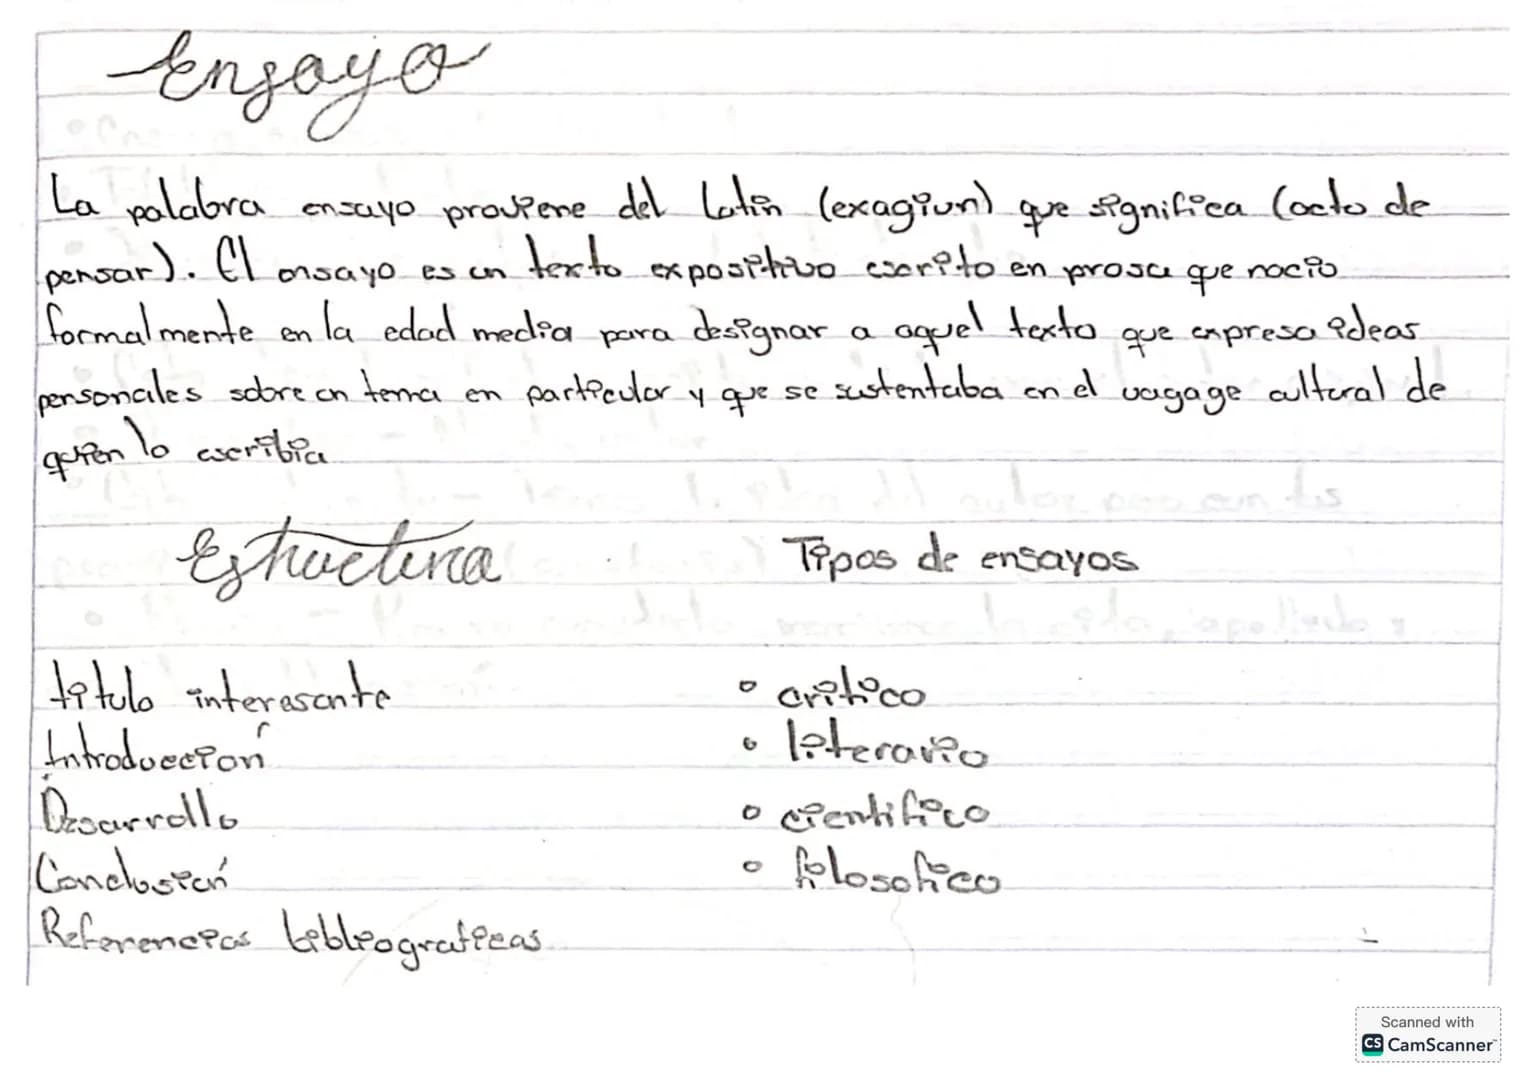 Ensayo
La palabra ensayo proviene del latin (exagiun) que significa (acto de
pensar). El ensayo es un texto expositivo escrito en prosa que nacio
formalmente en la edad media para designar a aquel texto que expresa ideas
personales sobre un tema en particular y que se sustentaba en el vagage cultural de
quien lo escribia
Estructura
Tipos de ensayos
titulo interesante
Introducción
Desarrollo
Conclusión
Referencias bibliograficas
• critico
• literario
• cientifico
• filosofico
Scanned with
CS CamScanner